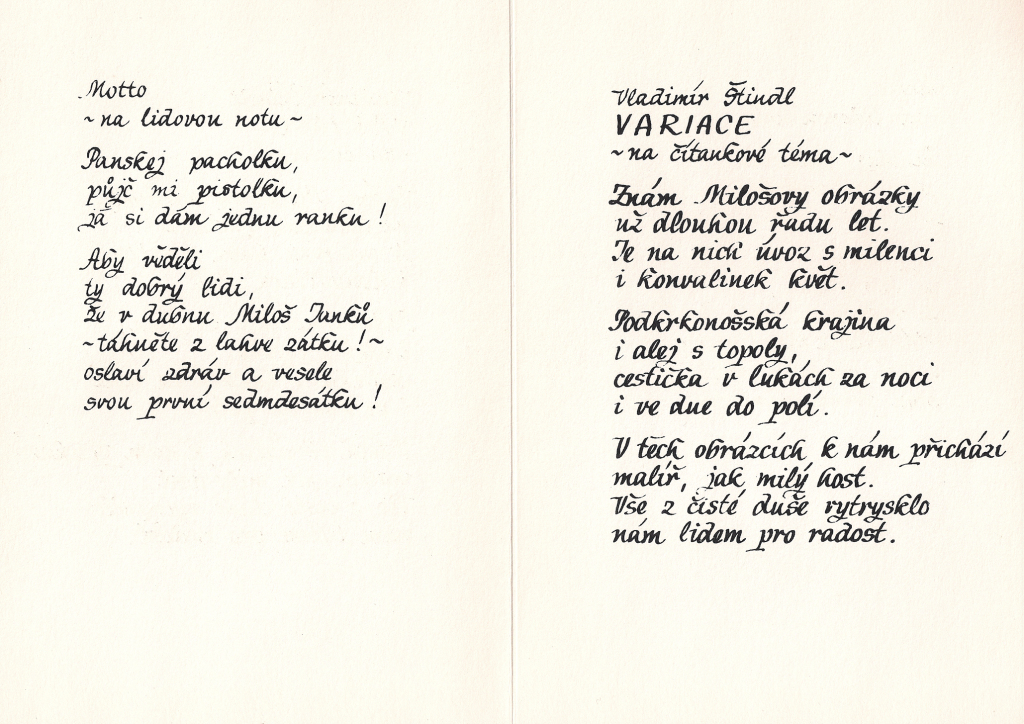 Motto
~na lidovou notu~
Panskej pacholku,
půjč mi pistolku,
já si dám jednu ranku!
Aby věděli
ty dobrý lidi,
že v dubnu Miloš Junků
~táhněte z lahve zátku!~
oslaví zdráv a vesele
svou první sedmdesátku!
Vladimír Štindl
VARIACE
~na čítankové téma~
Znám Milošovy obrázky
už dlouhou řadu let.
Je na nich úvoz s milenci
i konvalinek květ.
Podkrkonošská krajina
i alej s topoly,
cestička v lukách za noci
i ve dne do polí.
V těch obrázcích k nám přichází
malíř, jak milý host.
Vše z čisté duše vytrysklo
nám lidem pro radost.